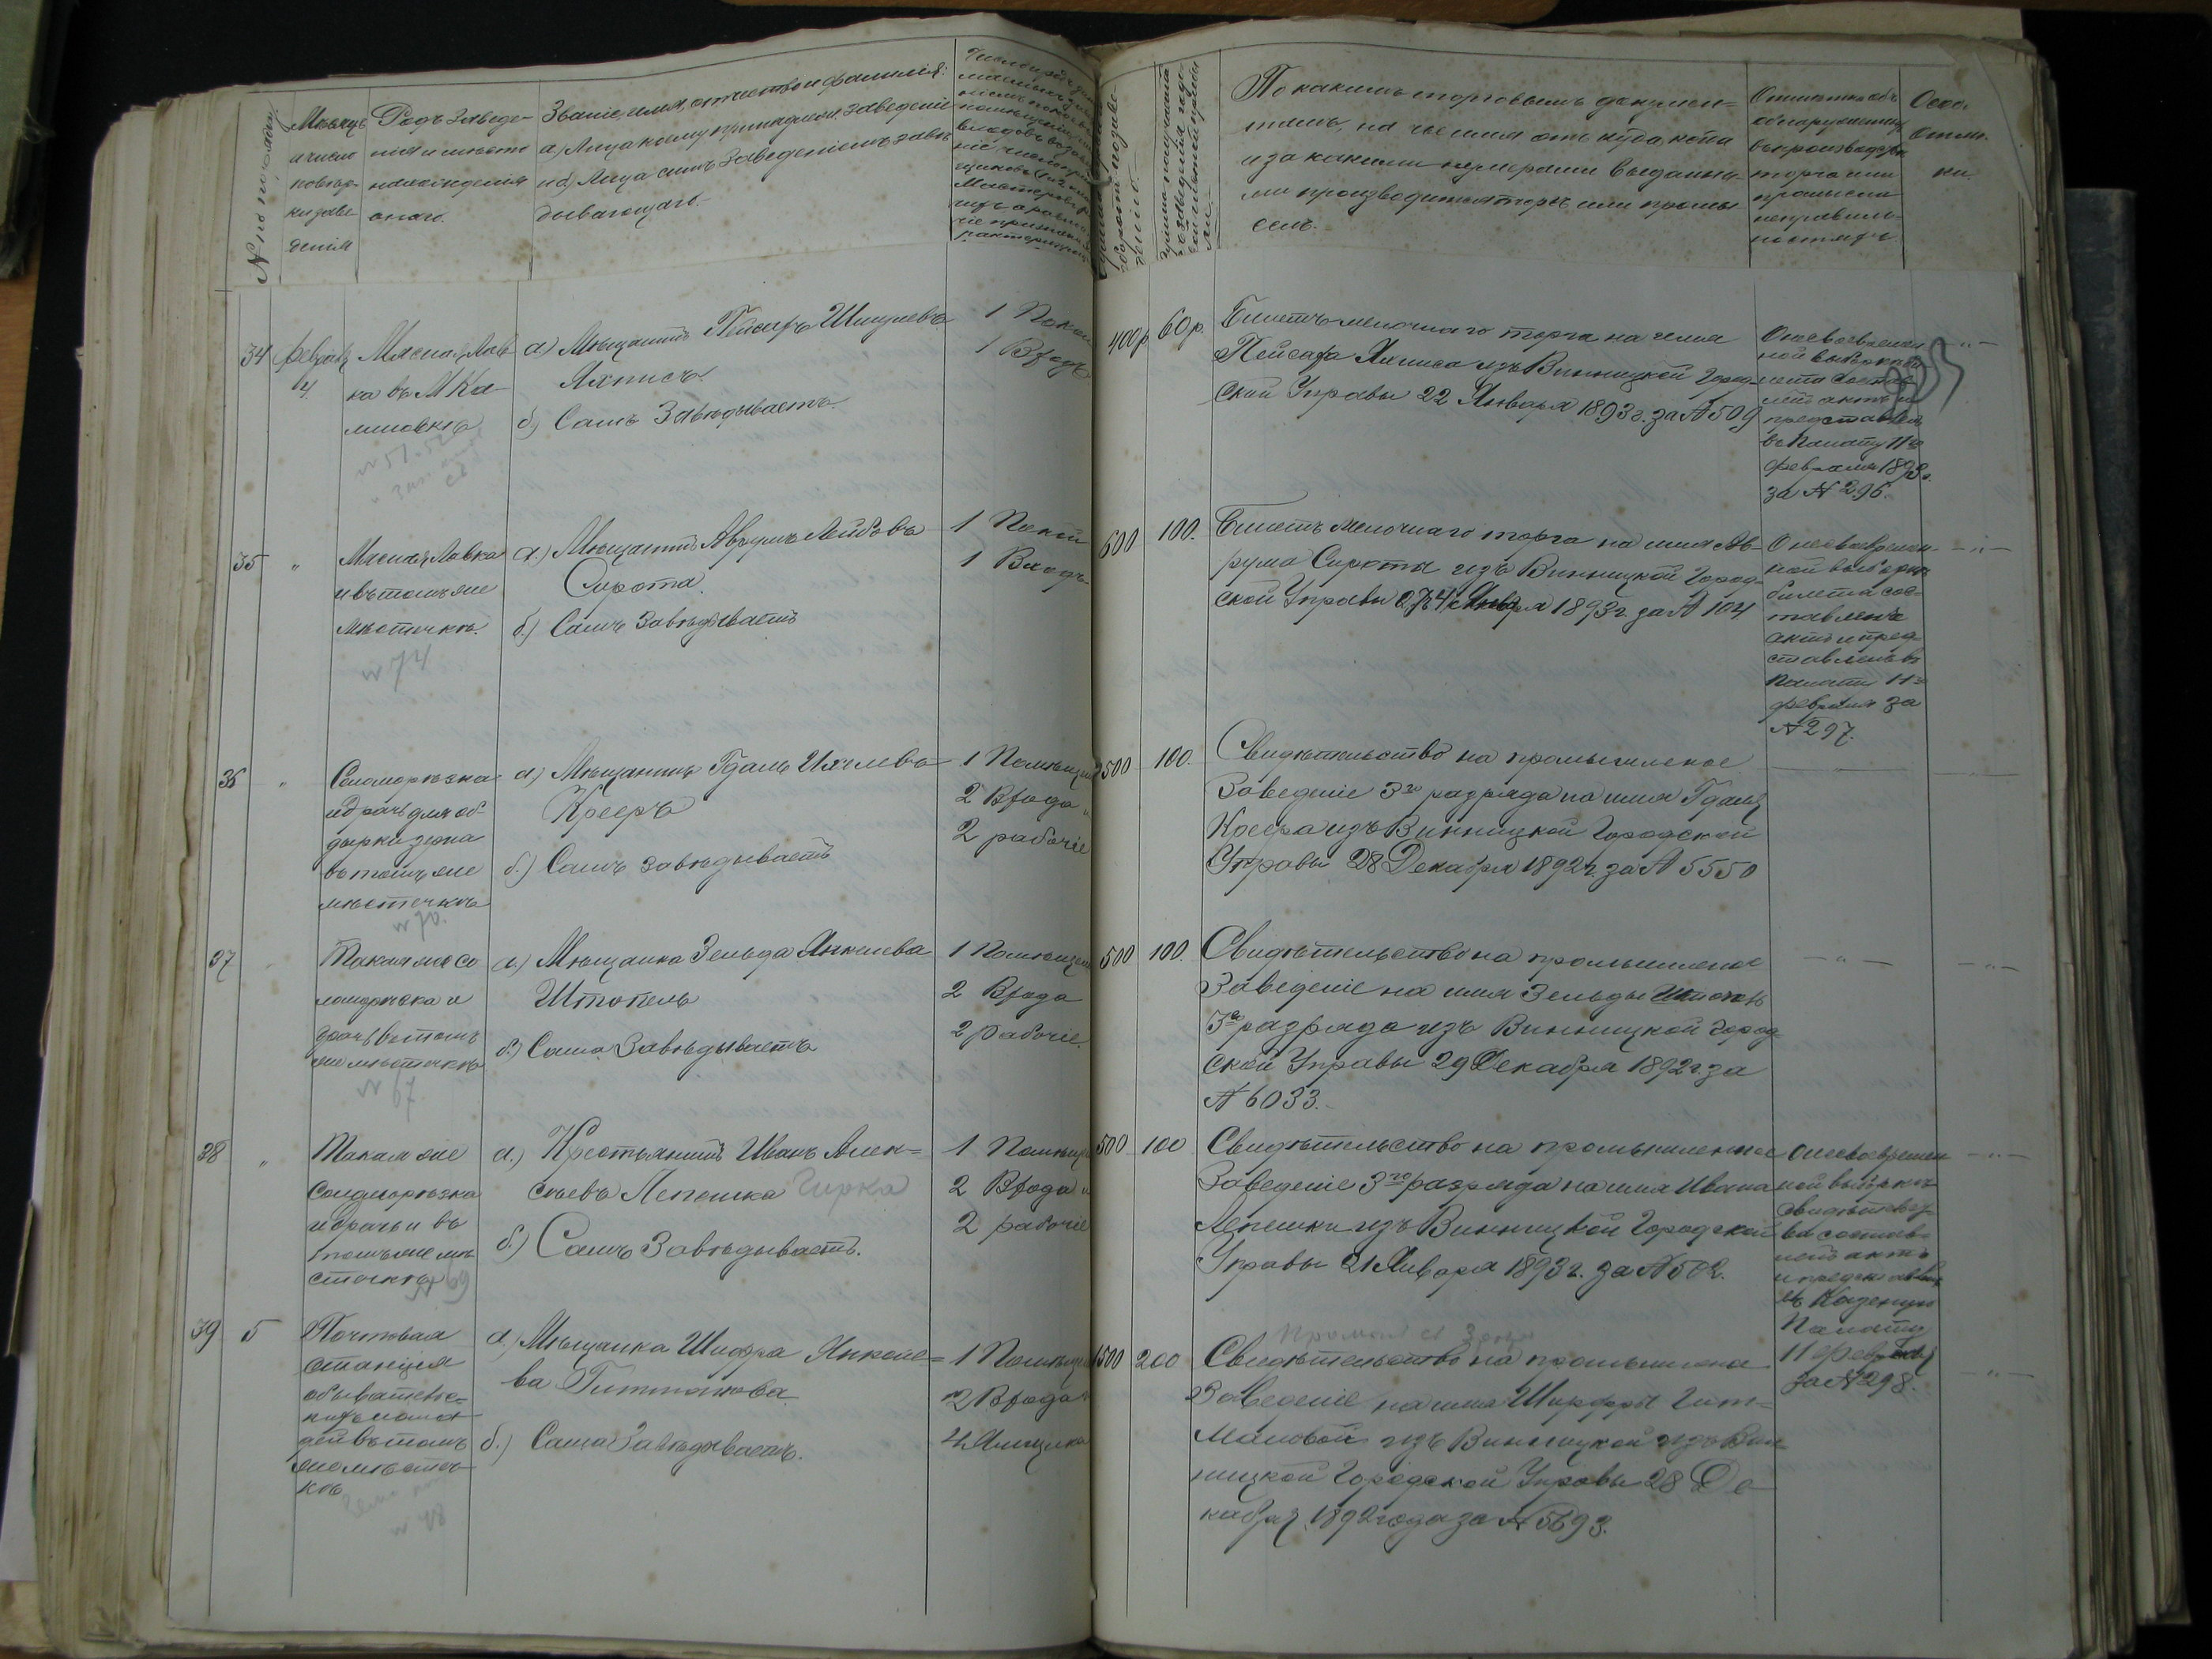 № по порядку
Мѣсяцъ
и число
повѣр-
ки заве-
денія
Родъ Заведе-
нія и мѣсто
нахожденія
онаго.
Званіе, имя, отчество и фамилія:
а) Лица кому принадлеж. заведеніе
и б) Лица симъ Заведеніемъ завѣ-
дывающаго.
По какимъ торговымъ докумен-
тамъ, на чье имя откуда, когда
и за какими нумерами выданны-
ми производится торгъ или промы
селъ.
Отмѣтка объ
обнаруженныхъ
въ производствѣ
торга или
промысла
неправиль-
ностяхъ
Особ.
отмѣт-
ки.
34 февраля
4.
Мясная Лав-
ка въ М Ка-
линовкѣ
а) Мѣщанинъ Пейсахъ Шмулевъ
Яхнисъ.
б) Самъ Завѣдываетъ.
1 Покой
1 Входъ
400р 60р.
Билетъ мелочнаго торга на имя
Пейсаха Яхниса изъ Винницкой Город-
ской Управы 22 Января 1893г. за № 509
О несвоевремен-
ной выборкѣ би-
лета состав-
ленъ актъ и
представленъ
въ Палату 11го
февраля 1893г.
за № 296.
35 "
Мясная Лавка
и въ томъ же
мѣстечкѣ.
№ 74
а.) Мѣщанинъ Аврумъ Лейбовъ
Сирота.
б.) Самъ Завѣдываетъ
1 Покой
1 Входъ
600 100.
Билетъ мелочнаго торга на имя Ав-
рума Сироты изъ Винницкой Город-
ской Управы Января 1893г. за № 104
О несвоевремен-
ной выборкѣ
билета сос-
тавленъ
актъ и пред-
ставленъ въ
Палату 11го
февраля за
№ 297.
36 "
Соломорѣзка
и драчъ для об-
дирки зерна
въ томъ же
мѣстечкѣ
№ 70.
а) Мѣщанинъ Гдаль Ихилевъ
Кресръ
б.) Самъ завѣдываетъ
1 Помѣщен
2 Входа
2 рабочіе
500 100.
Свидѣтельство на промышленое
Заведеніе 3го разряда на имя Гдаля
Кресра изъ Винницкой Городской
Управы 28 Декабря 1892г. за № 5550
37
Такая же со
ломорѣзка и
драчъ въ томъ
же мѣстечкѣ
№ 67.
а.) Мѣщанка Зельда Янкелева
Штопель
б.) Сама Завѣдываетъ
1 Помѣщен
2 Входа
2 рабочіе.
500 100.
Свидѣтельство на промышленое
Заведеніе на имя Зельды Штопель
3го разряда изъ Винницкой Город-
ской Управы 29 Декабря 1892г. за
№ 6033.
38 "
Такая же
Соломорѣзка
и драчъ и въ
томъ же мѣ
стечкѣ № 69
а.) Крестьянинъ Иванъ Алек-
сѣевъ Лепешка Гирка
б.) Самъ Завѣдываетъ.
1 Помѣщ
2 Входа и
2 рабочіе
500 100
Свидѣтельство на промышленное
Заведеніе 3го разряда на имя Ивана
Лепешки изъ Винницкой Городской
Управы 21 Января 1893г. за № 502.
О несвоевремен
ной выборкѣ
свидѣтельст-
ва состав-
ленъ актъ
и представленъ
въ Казенную
Палату
11 февраля
за № 298.
39 5
Почтовая
станція
обыватель-
скихъ лоша-
дей въ томъ
же мѣстеч-
кѣ
№ 48
а) Мѣщанка Шифра Янкеле-
ва Гиттманова
б.) Сама Завѣдываетъ.
1 Помѣщен
2 Входа и
4 Ямщика
1500 200
Свидѣтельство на промышлено
Заведеніе на имя Шифры Гит-
мановой изъ Винницкой изъ Вин-
ницкой Городской Управы 28 Де-
кабря 1892 года за № 5693.